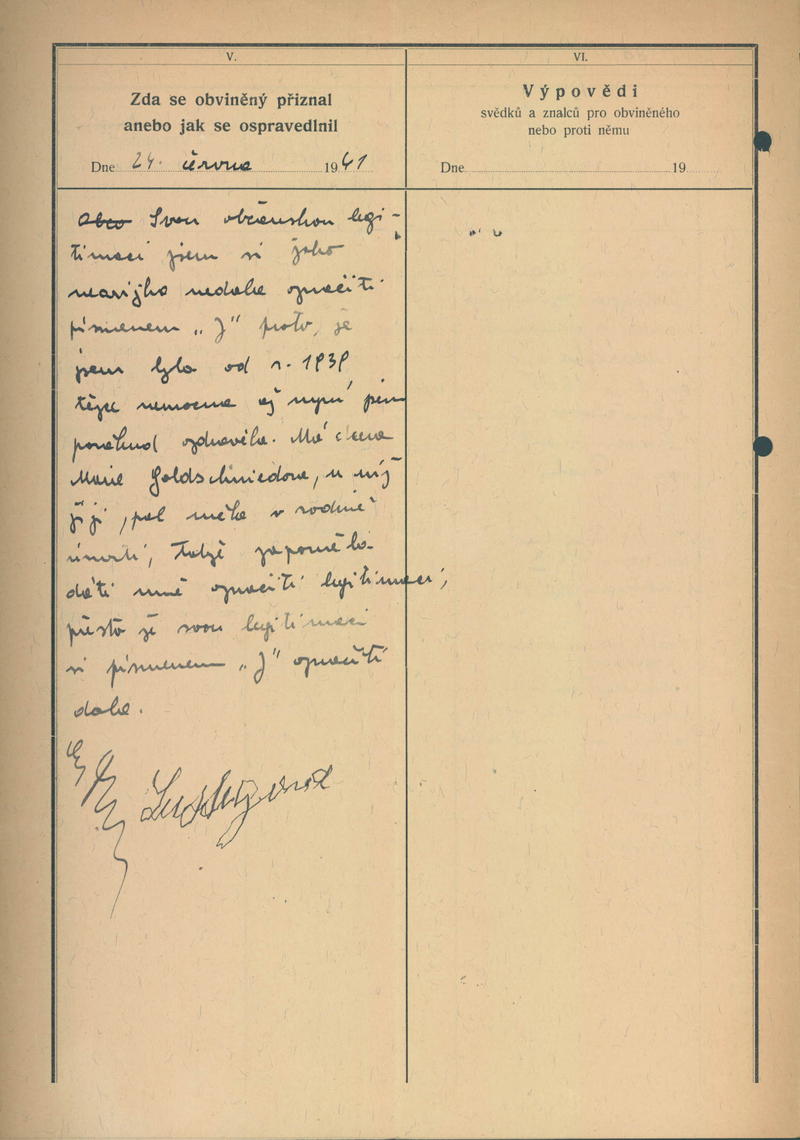 V.
Zda se obviněný přiznal
anebo jak se ospravedlnil
Dne 24. června 1941
Svou občanskou legi-
timaci jsem si jako
nearijka nedala označiti
písmenem „J" proto, že
jsem byla od r. 1939
těžce nemocna až nyní jsem
poněkud ozdravěla. Má dcera
Marie Goldschmiedova, u níž
žiji, pak měla v rodině
úmrtí, takže zapomněla
dáti mně označiti legitimaci,
přesto že svou legitimaci
si písmenem „J" označiti
dala.
VI.
Výpovědi
svědků a znalců pro obviněného
nebo proti němu
Dne 19